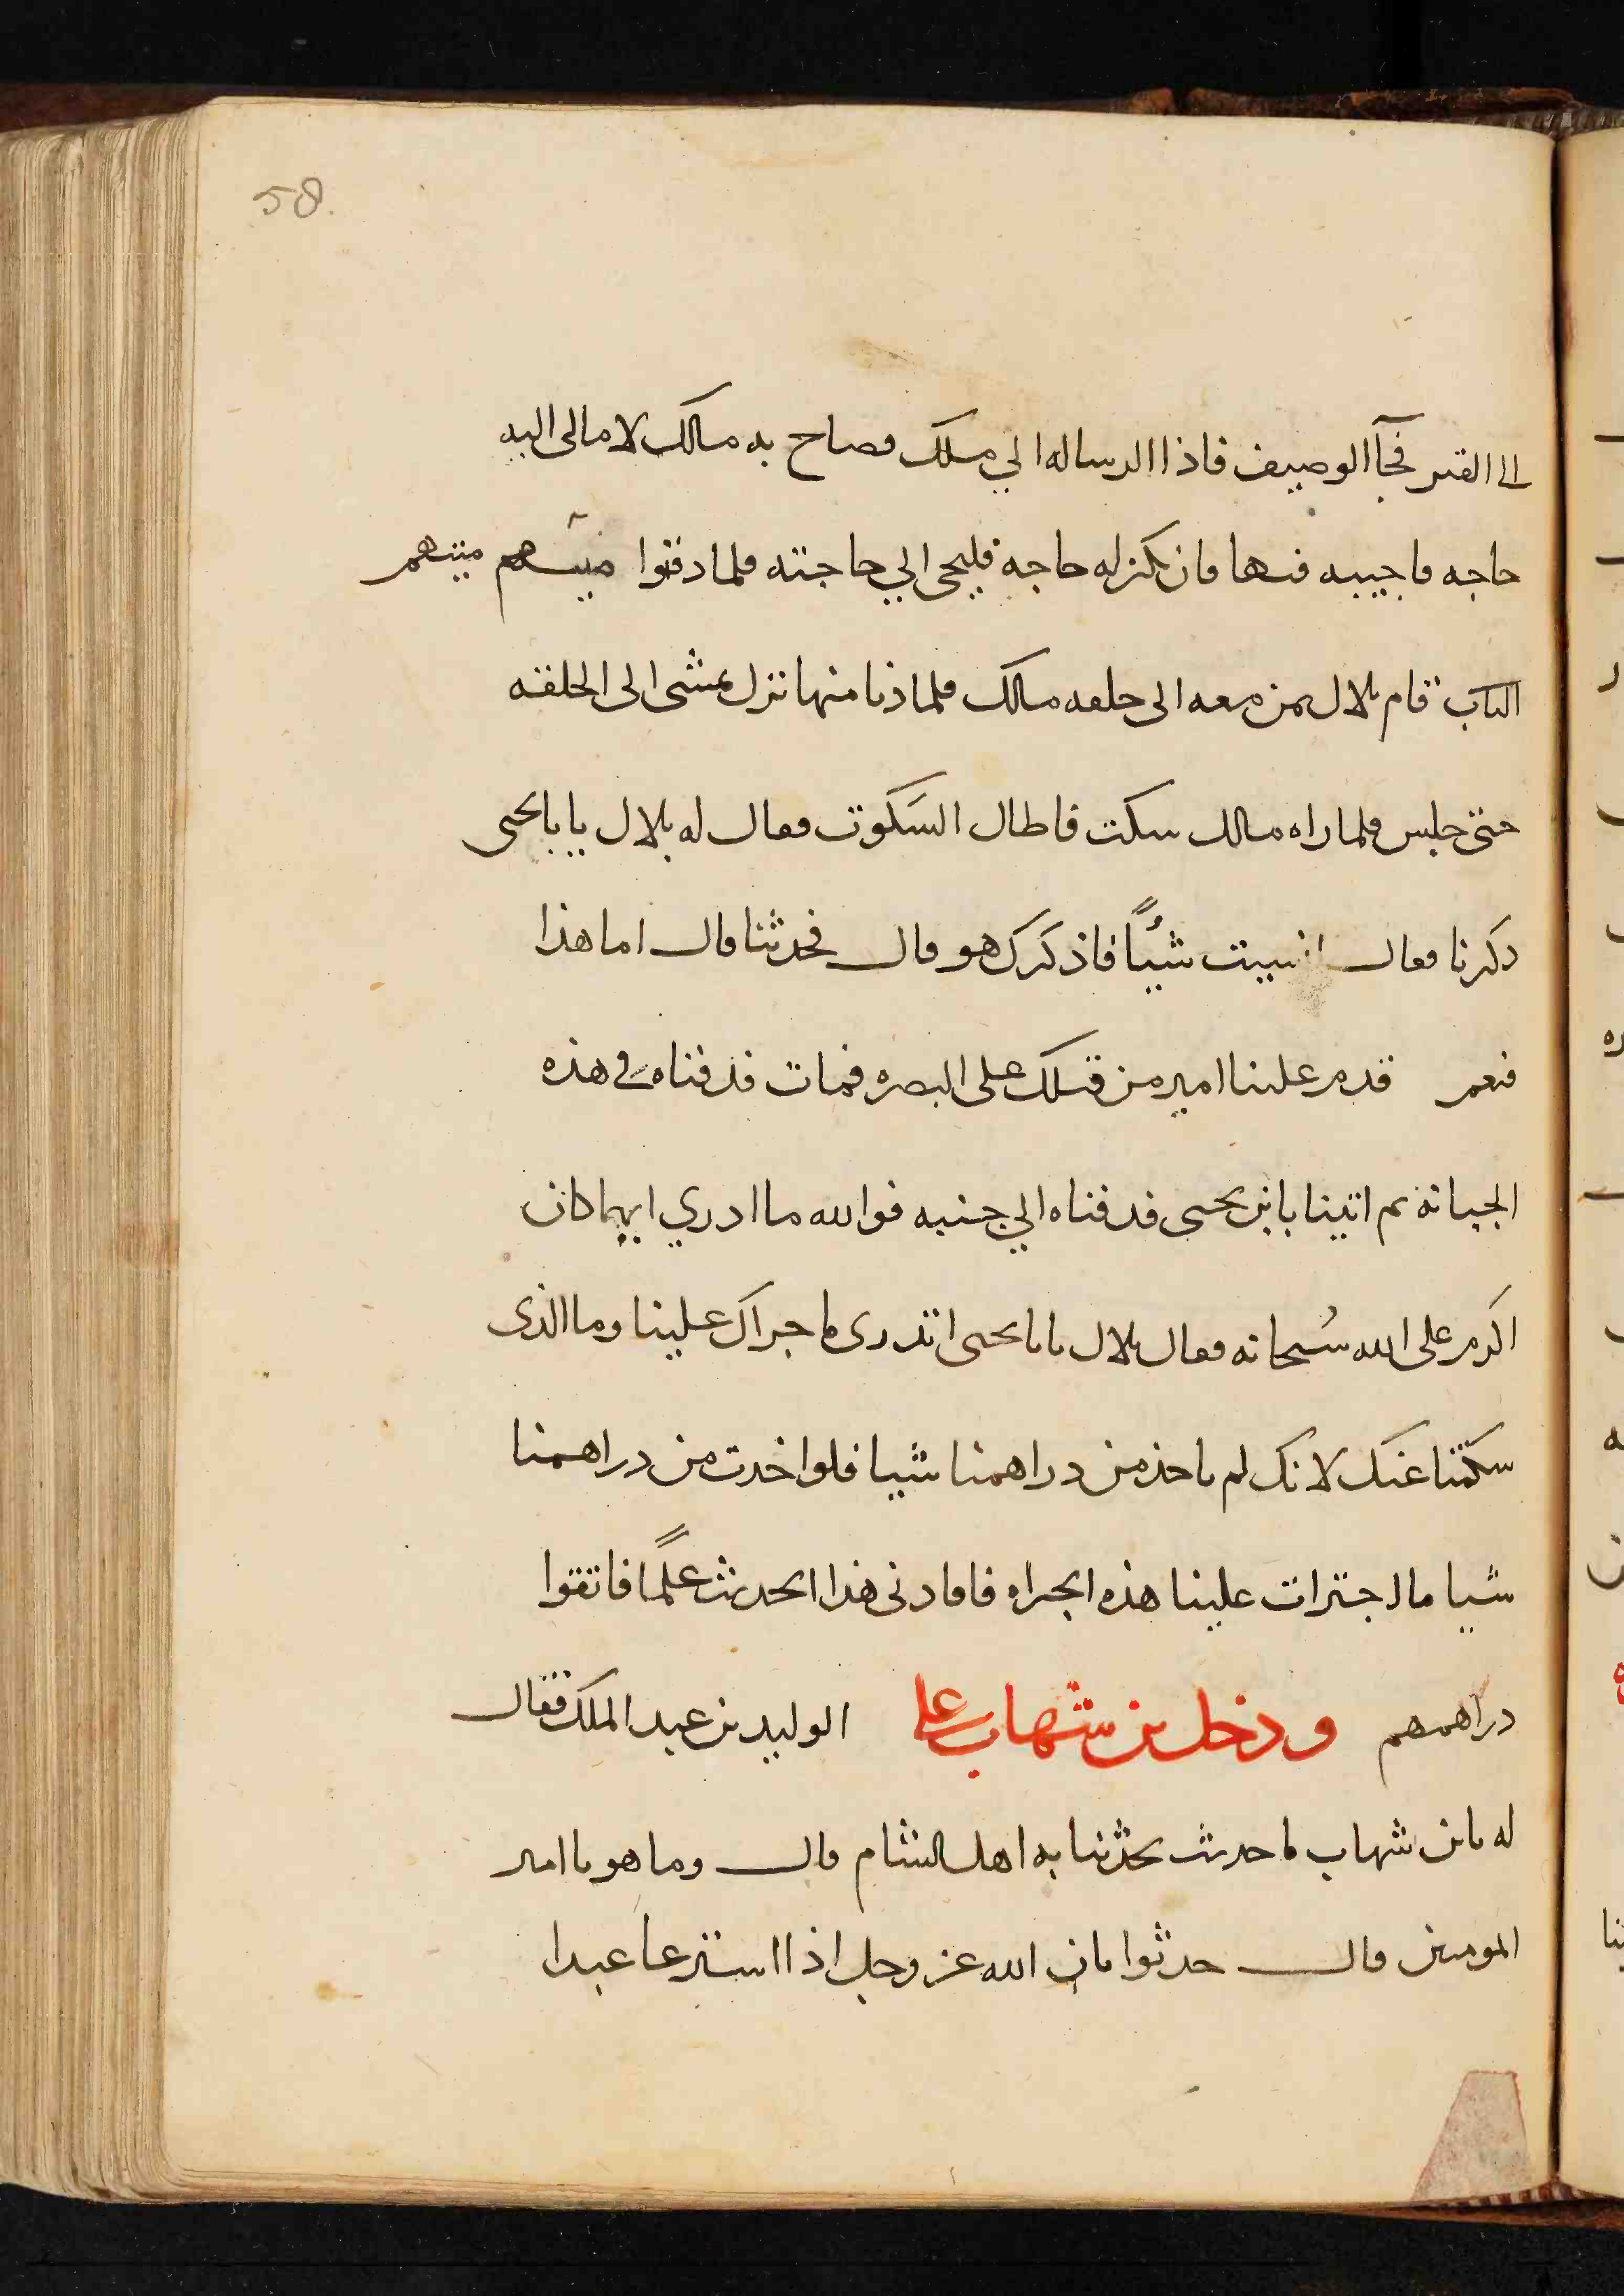 58
الى القبر فجآ الوصيف فاذا الرساله الي ملك فصاح به مالك لا مالى اليه
حاجه فاجيبه فيها فان يكن له حاجه فليجى الي حاجته فلما دفنوا ميتهم ميتهم
قام بلال بمن معه الى حلقه مالك فلما دنا منها نزل يمشى الى الحلقه
حتى جلس فلما راه مالك سكت فاطال السكوت فقال له بلال يا با يحيى
ذكرنا فقال انسيت شيًا فاذكرك هو قال فحدثنا قال اما هذا
فنعم قدم علينا امير من قبلك على البصره فمات فدفناه في هذه
الجبانة ثم اتينا بابن يحيى فدفناه الي جنبه فوالله ما ادري ايهما كان
اكرم على الله سُبحانه فقال بلال يا با يحيى اتدرى ما جراك علينا وما الذى
سكتنا عنك لانك لم تاخذ من دراهمنا شيا فلو اخدت من دراهمنا
شيا ما اجترات علينا هذه الجراه فافادنى هذا الحديث علمًا فاتقوا
دراهمهم ودخل بن شهاب على الوليد بن عبد الملك فقال
له يا بن شهاب ما حديث يحدثنا به اهل الشام قال وما هو يا امير
المومنين قال حدثوا بان الله عز وجل اذا استرعا عبدا